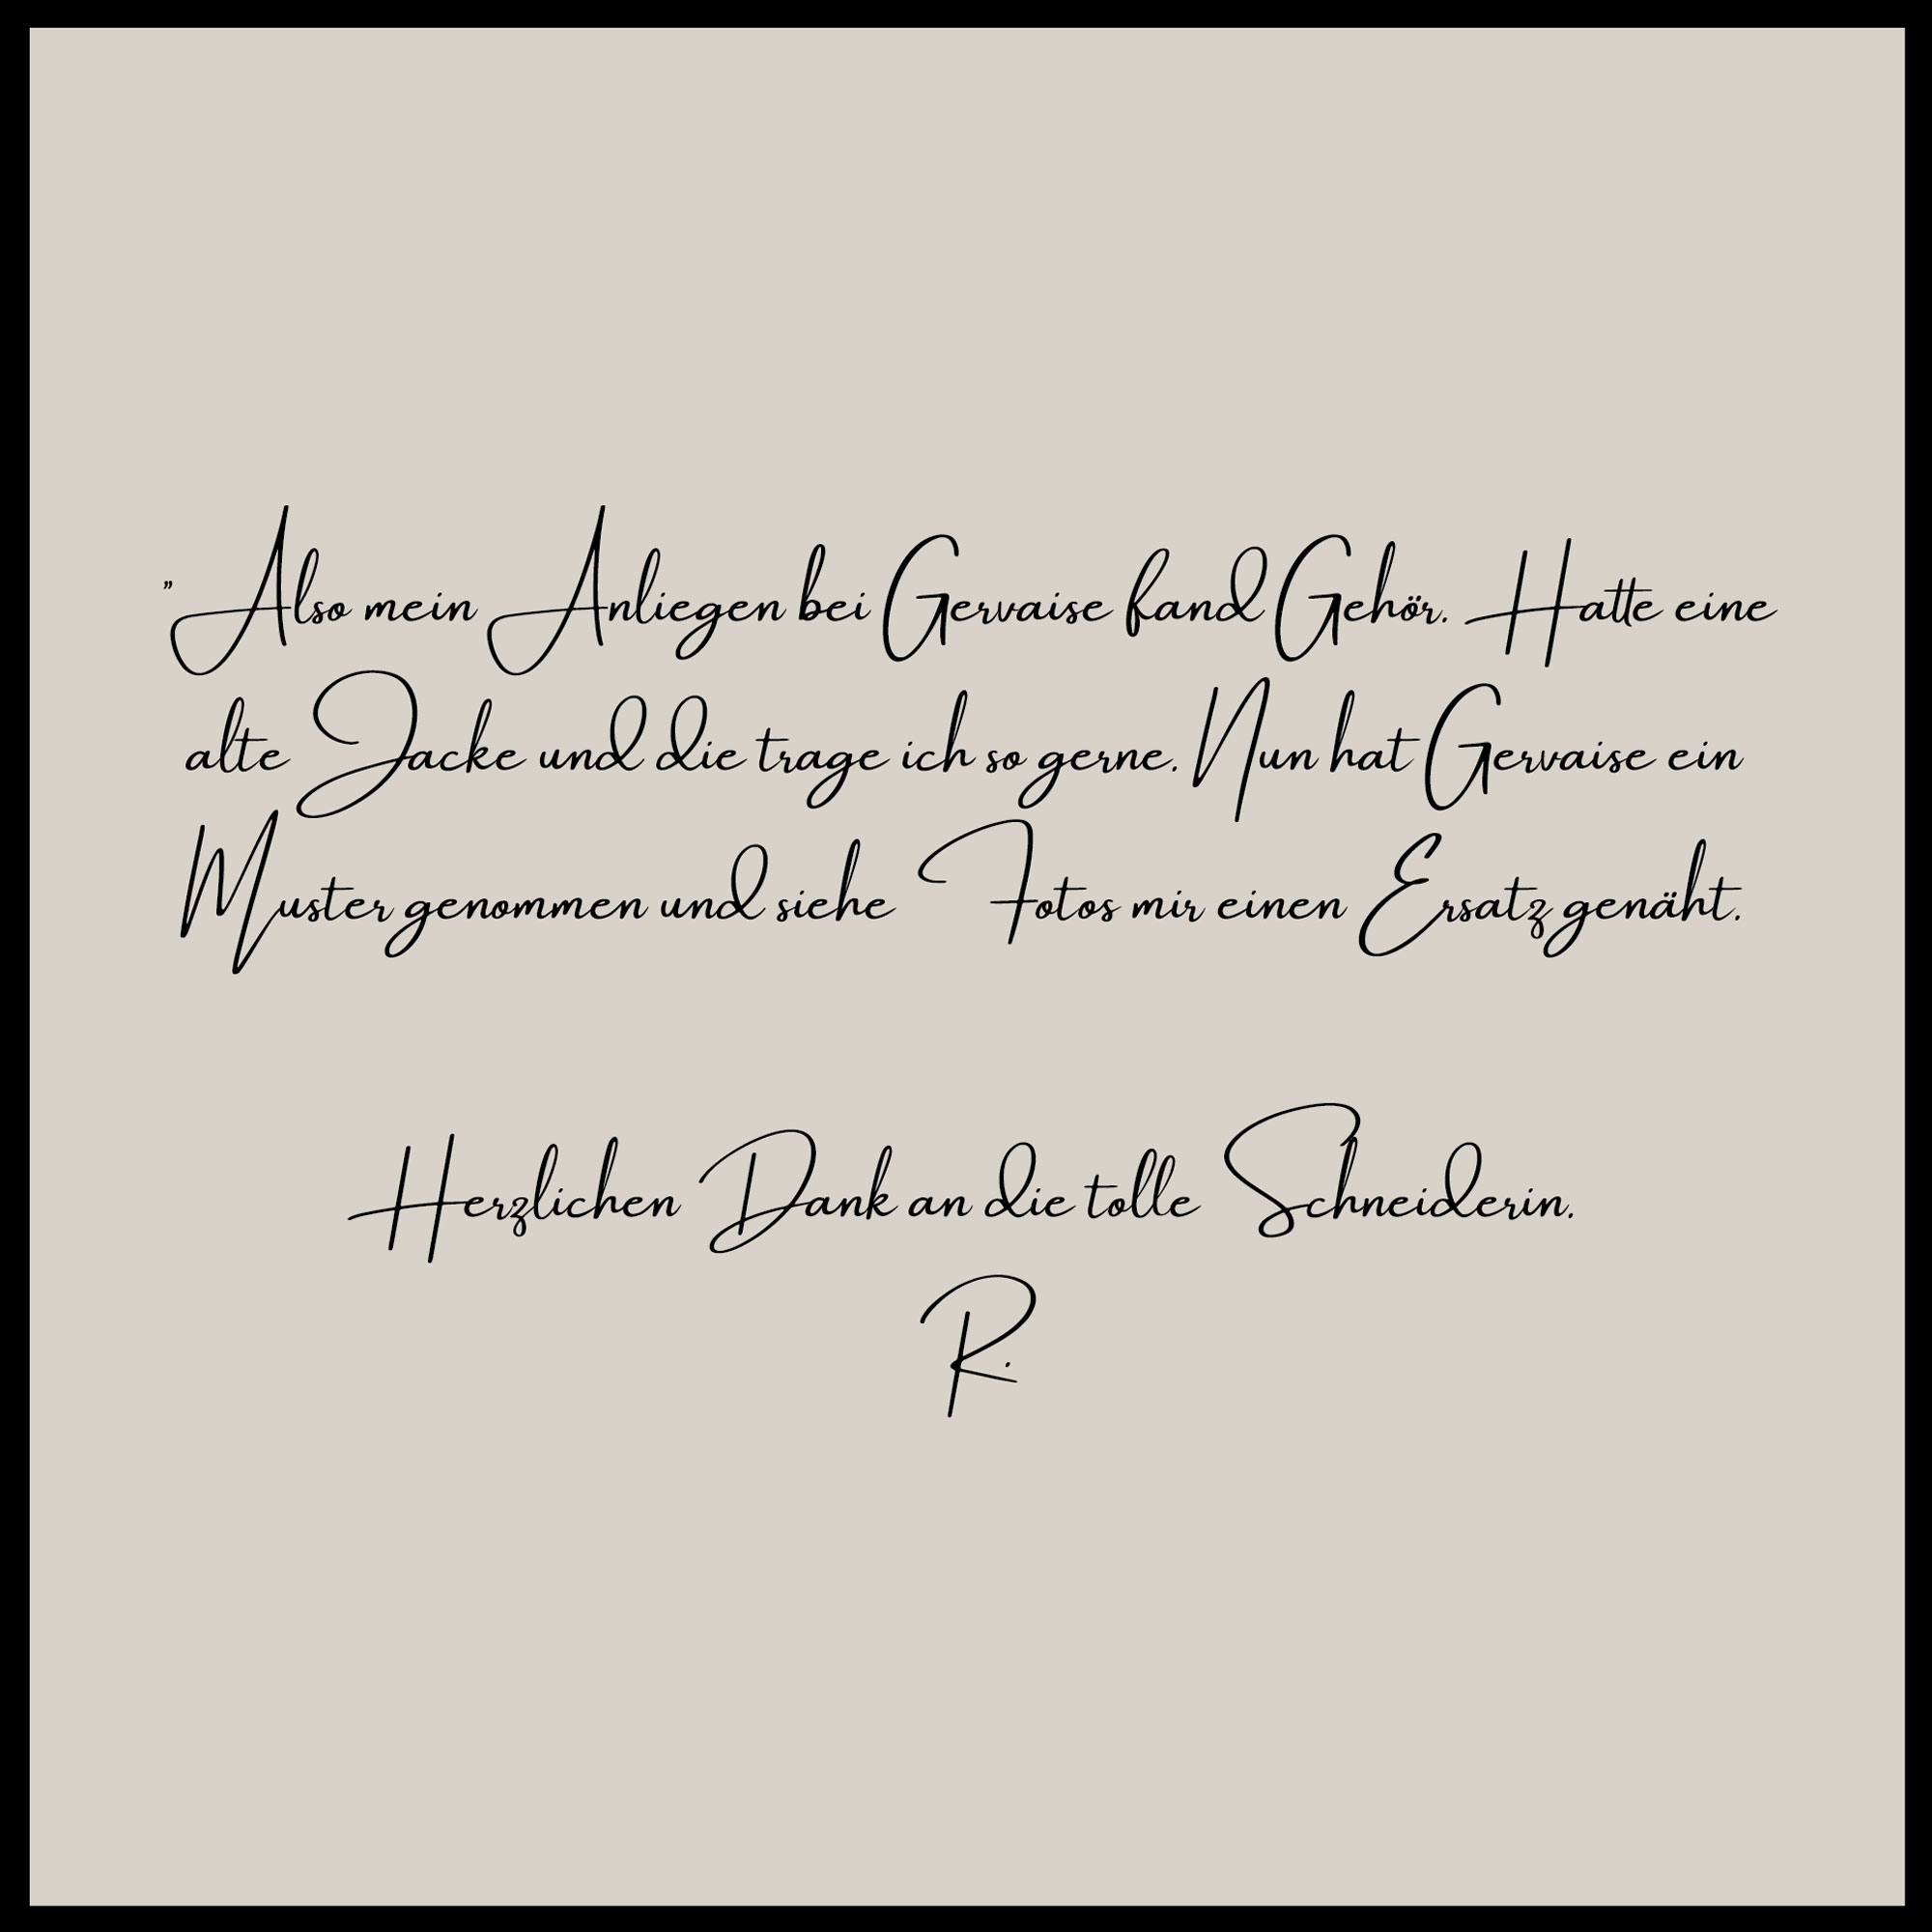 " Also mein Anliegen bei Gervaise fand Gehör. Hatte eine
alte Jacke und die trage ich so gerne. Nun hat Gervaise ein
Muster genommen und siehe Fotos mir einen Ersatz genäht.
Herzlichen Dank an die tolle Schneiderin.
R.